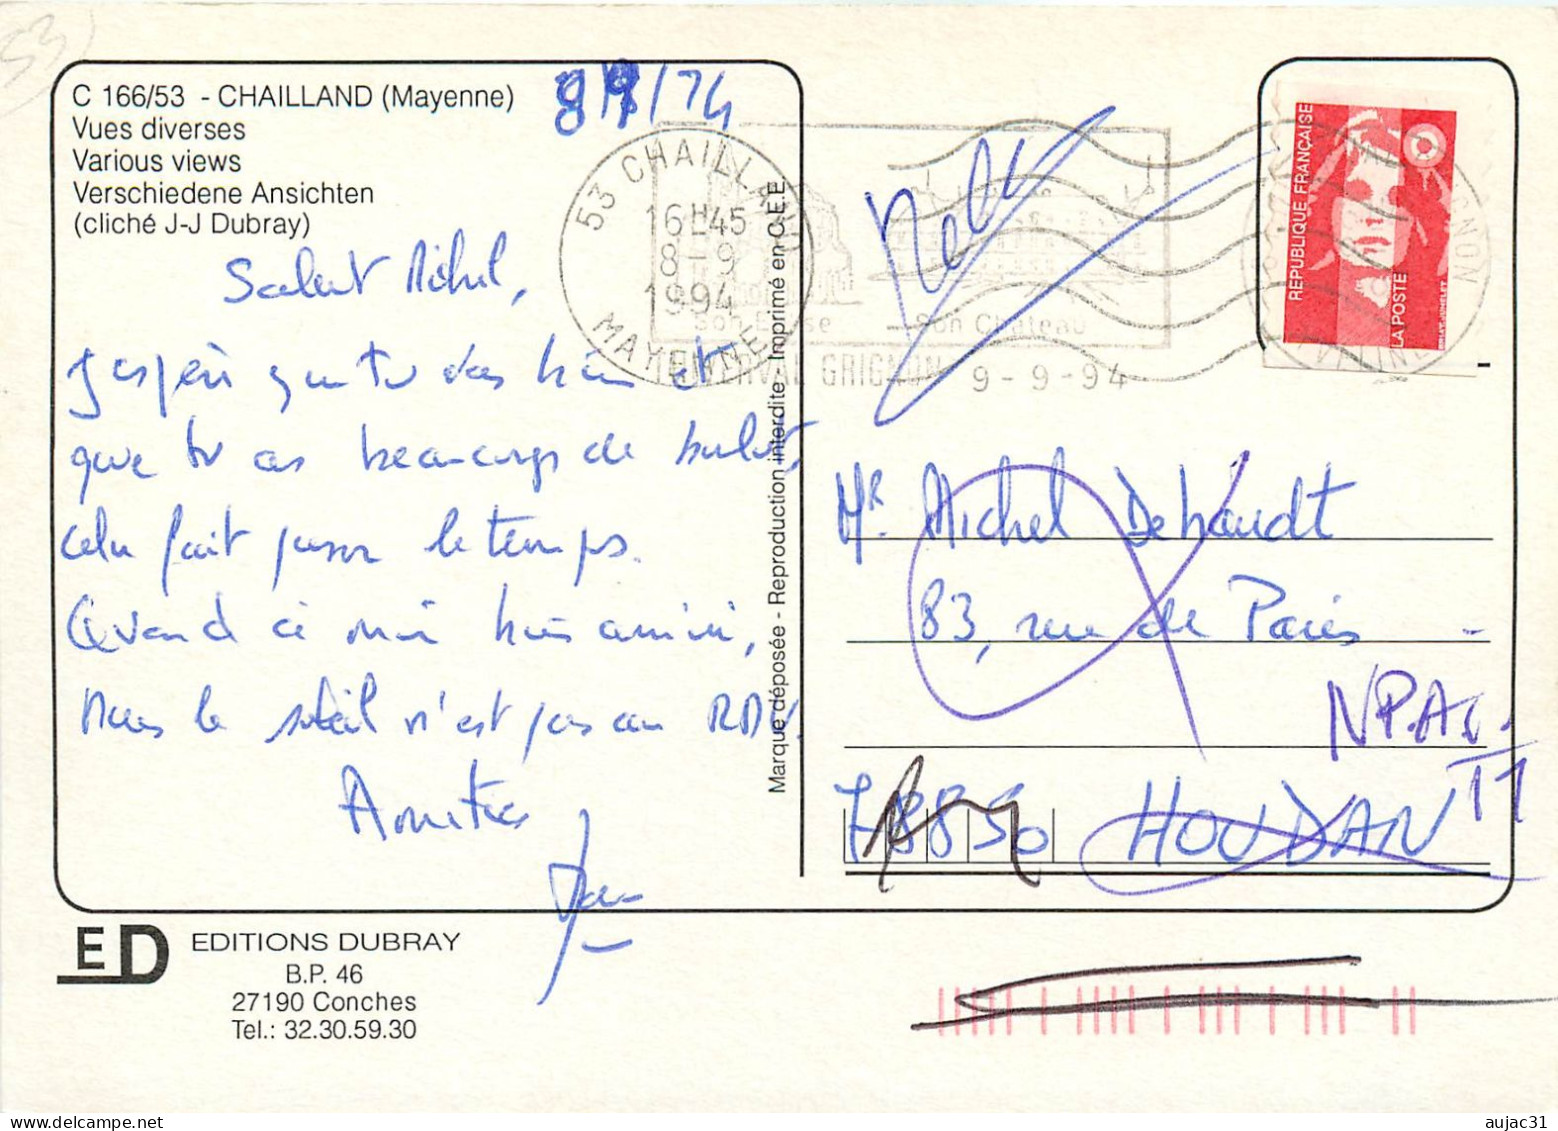 53
C 166/53 - CHAILLAND (Mayenne)
Vues diverses
Various views
Verschiedene Ansichten
(cliché J-J Dubray)
53 CHAILLAND
16H45
8-9
1994
MAYENNE
Son Eglise
Son Château
THIVERVAL GRIGNON 9-9-94
REPUBLIQUE FRANÇAISE
LA POSTE
Salut Michel,
J'espère que tu vas bien et
que tu as beaucoup de boulot,
cela fait passer le temps.
Quand à moi bien arrivé,
mais le soleil n'est pas au RDV.
Amitiés
Marque déposée - Reproduction interdite - Imprimé en C.E.E
Mr. Michel Dehaudt
83, rue de Paris
NPAI
78850 HOUDAN
ED
EDITIONS DUBRAY
B.P. 46
27190 Conches
Tel.: 32.30.59.30
aujac31